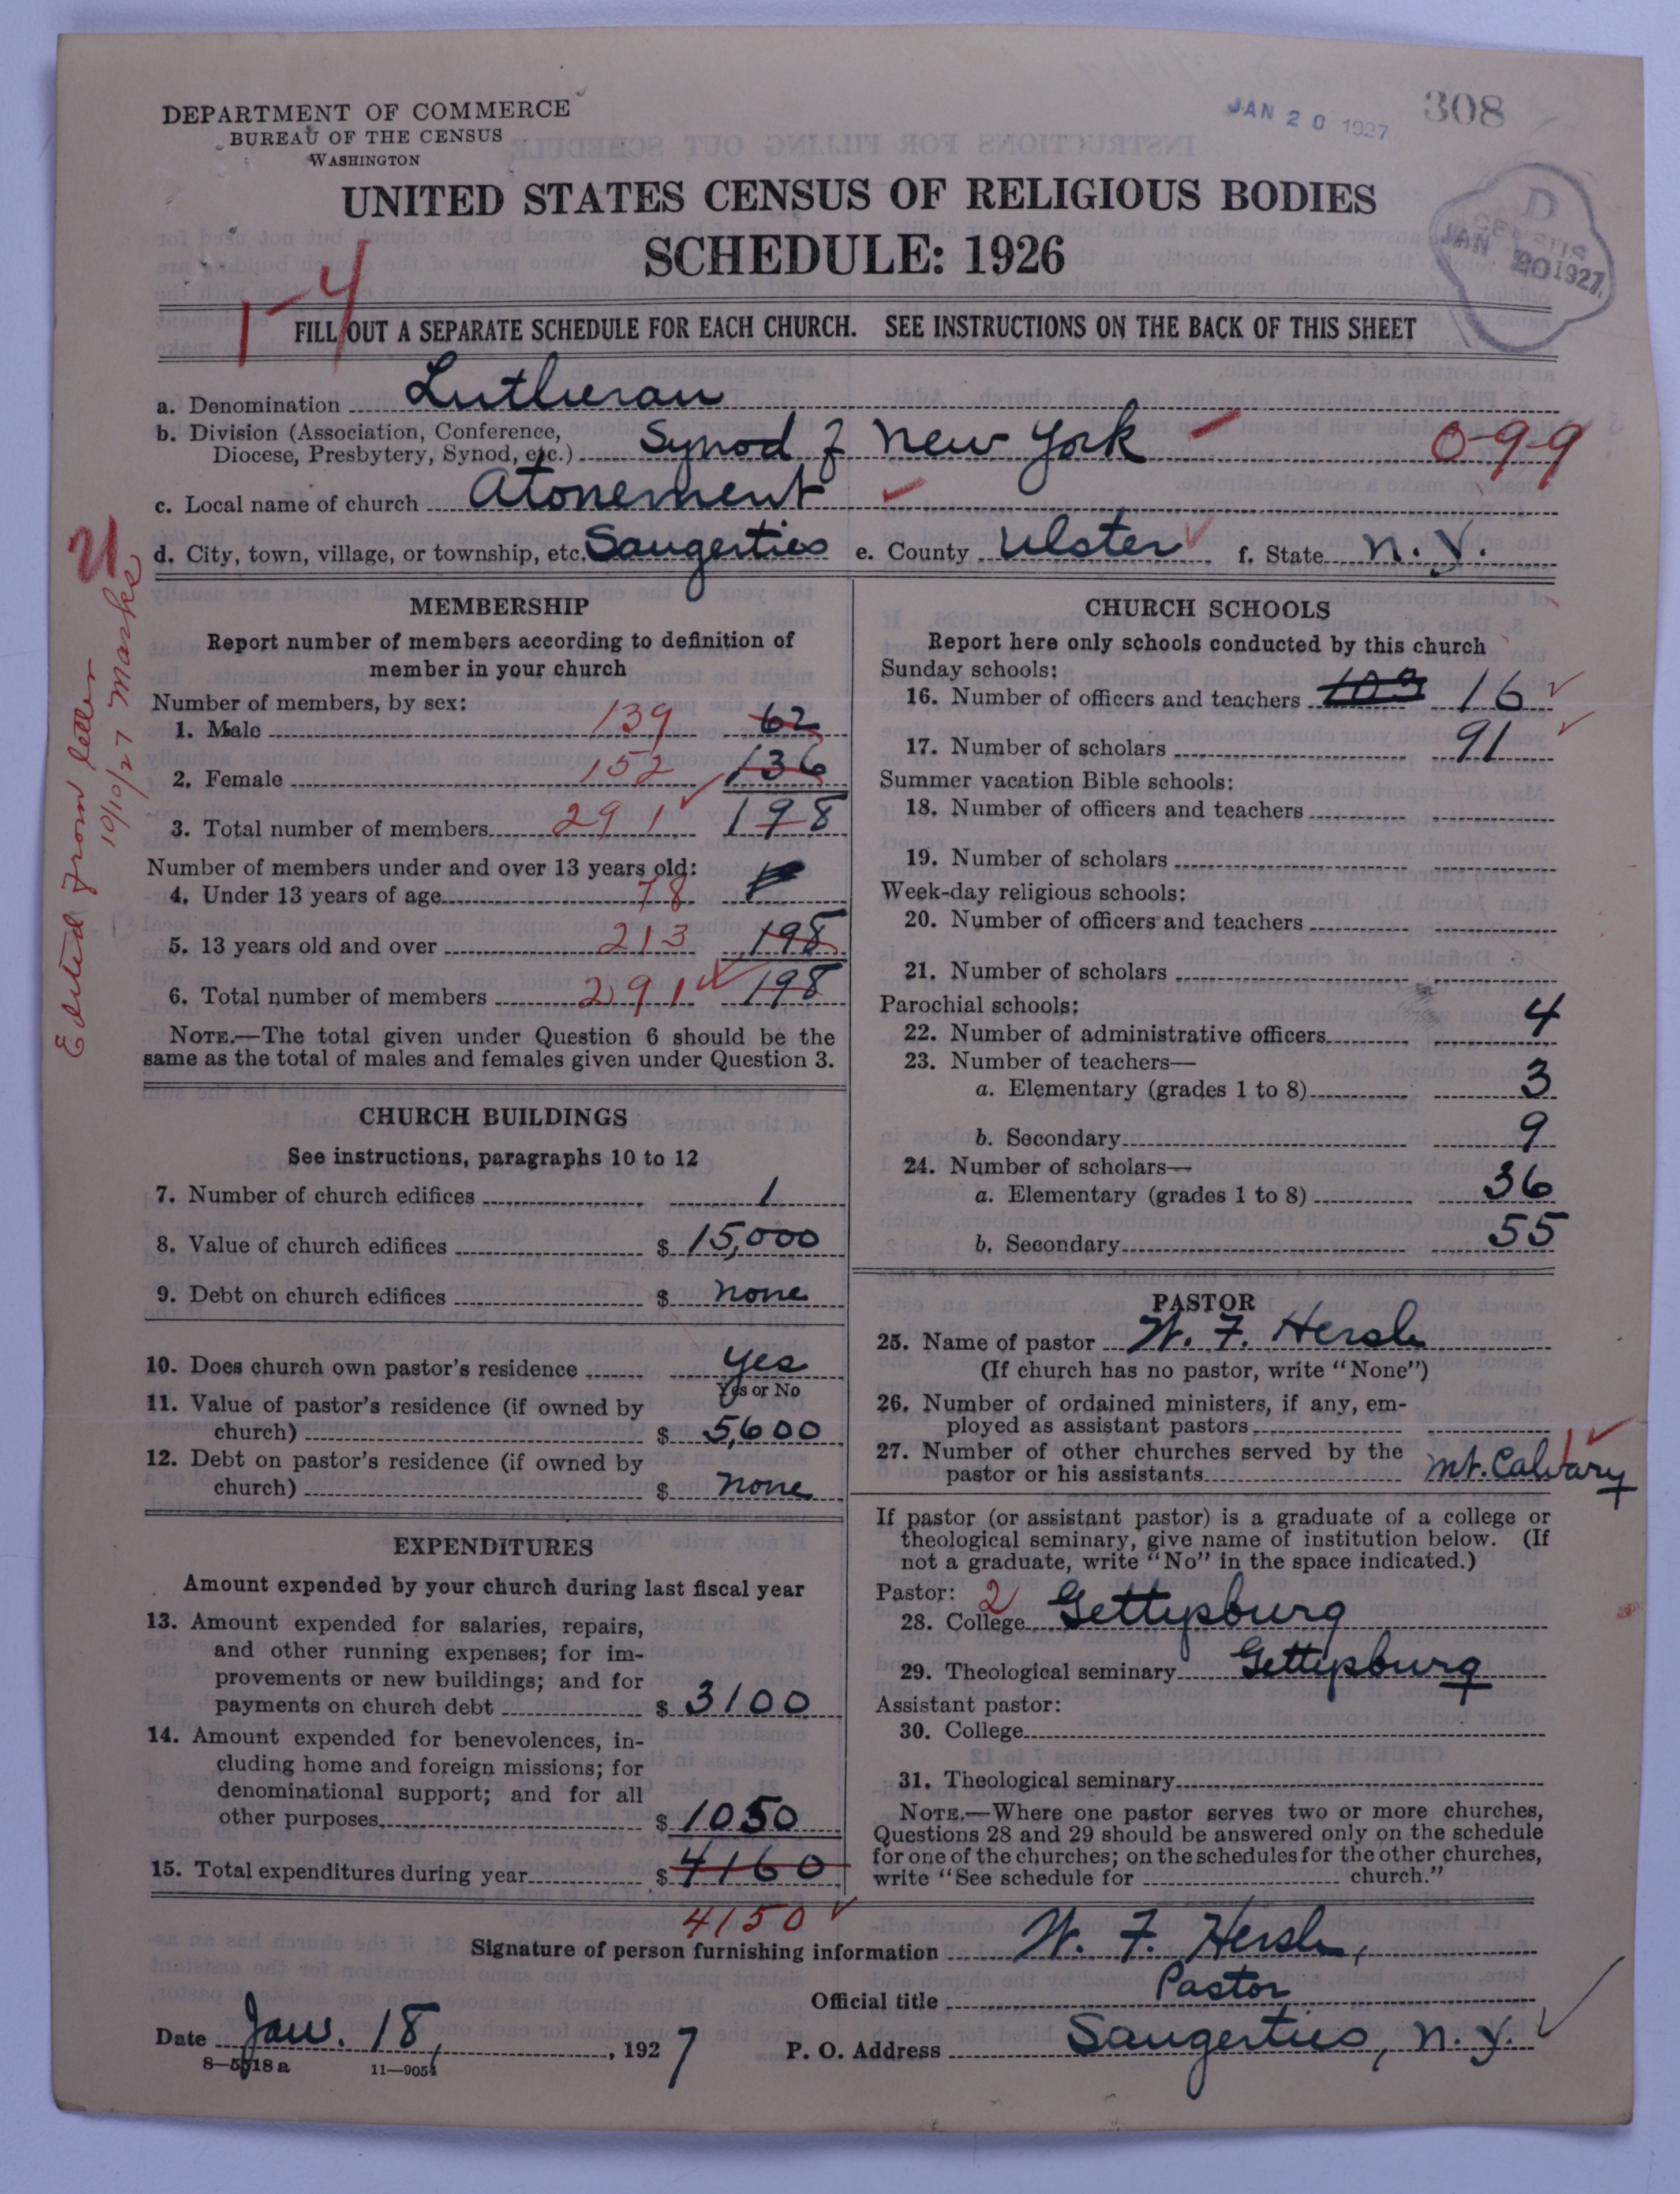 DEPARTMENT OF COMMERCE
BUREAU OF THE CENSUS
WASHINGTON
JAN 20 1927
308
UNITED STATES CENSUS OF RELIGIOUS BODIES
SCHEDULE: 1926
D
JAN 20 1927
1-4
FILL OUT A SEPARATE SCHEDULE FOR EACH CHURCH. SEE INSTRUCTIONS ON THE BACK OF THIS SHEET
a. Denomination Lutheran
b. Division (Association, Conference,
Diocese, Presbytery, Synod, etc.) Synod of New York 0-9-9
c. Local name of church Atonement
d. City, town, village, or township, etc. Saugerties e. County Ulster f. State N. Y.
Edited from letter
10/10/27 Marks
MEMBERSHIP
Report number of members according to definition of
member in your church
Number of members, by sex:
1. Male 139 62
2. Female 152 136
3. Total number of members 291 198
Number of members under and over 13 years old:
4. Under 13 years of age 78
5. 13 years old and over 213 198
6. Total number of members 291 198
NOTE.—The total given under Question 6 should be the
same as the total of males and females given under Question 3.
CHURCH BUILDINGS
See instructions, paragraphs 10 to 12
7. Number of church edifices 1
8. Value of church edifices $ 15,000
9. Debt on church edifices $ none
10. Does church own pastor's residence yes
Yes or No
11. Value of pastor's residence (if owned by
church) $ 5,600
12. Debt on pastor's residence (if owned by
church) $ none
EXPENDITURES
Amount expended by your church during last fiscal year
13. Amount expended for salaries, repairs,
and other running expenses; for im-
provements or new buildings; and for
payments on church debt $ 3100
14. Amount expended for benevolences, in-
cluding home and foreign missions; for
denominational support; and for all
other purposes $ 1050
15. Total expenditures during year $ 4160
4150
CHURCH SCHOOLS
Report here only schools conducted by this church
Sunday schools:
16. Number of officers and teachers 103 16
17. Number of scholars 91
Summer vacation Bible schools:
18. Number of officers and teachers
19. Number of scholars
Week-day religious schools:
20. Number of officers and teachers
21. Number of scholars
Parochial schools:
22. Number of administrative officers 4
23. Number of teachers—
a. Elementary (grades 1 to 8) 3
b. Secondary 9
24. Number of scholars—
a. Elementary (grades 1 to 8) 36
b. Secondary 55
PASTOR
25. Name of pastor W. F. Hersh
(If church has no pastor, write "None")
26. Number of ordained ministers, if any, em-
ployed as assistant pastors
27. Number of other churches served by the
pastor or his assistants Mt. Calvary 1
If pastor (or assistant pastor) is a graduate of a college or
theological seminary, give name of institution below. (If
not a graduate, write "No" in the space indicated.)
Pastor: 2
28. College Gettysburg
29. Theological seminary Gettysburg
Assistant pastor:
30. College
31. Theological seminary
NOTE.—Where one pastor serves two or more churches,
Questions 28 and 29 should be answered only on the schedule
for one of the churches; on the schedules for the other churches,
write "See schedule for church."
Signature of person furnishing information W. F. Hersh,
Official title Pastor
Date Jan. 18, 1927 P. O. Address Saugerties, N. Y.
8—5518a 11—9054